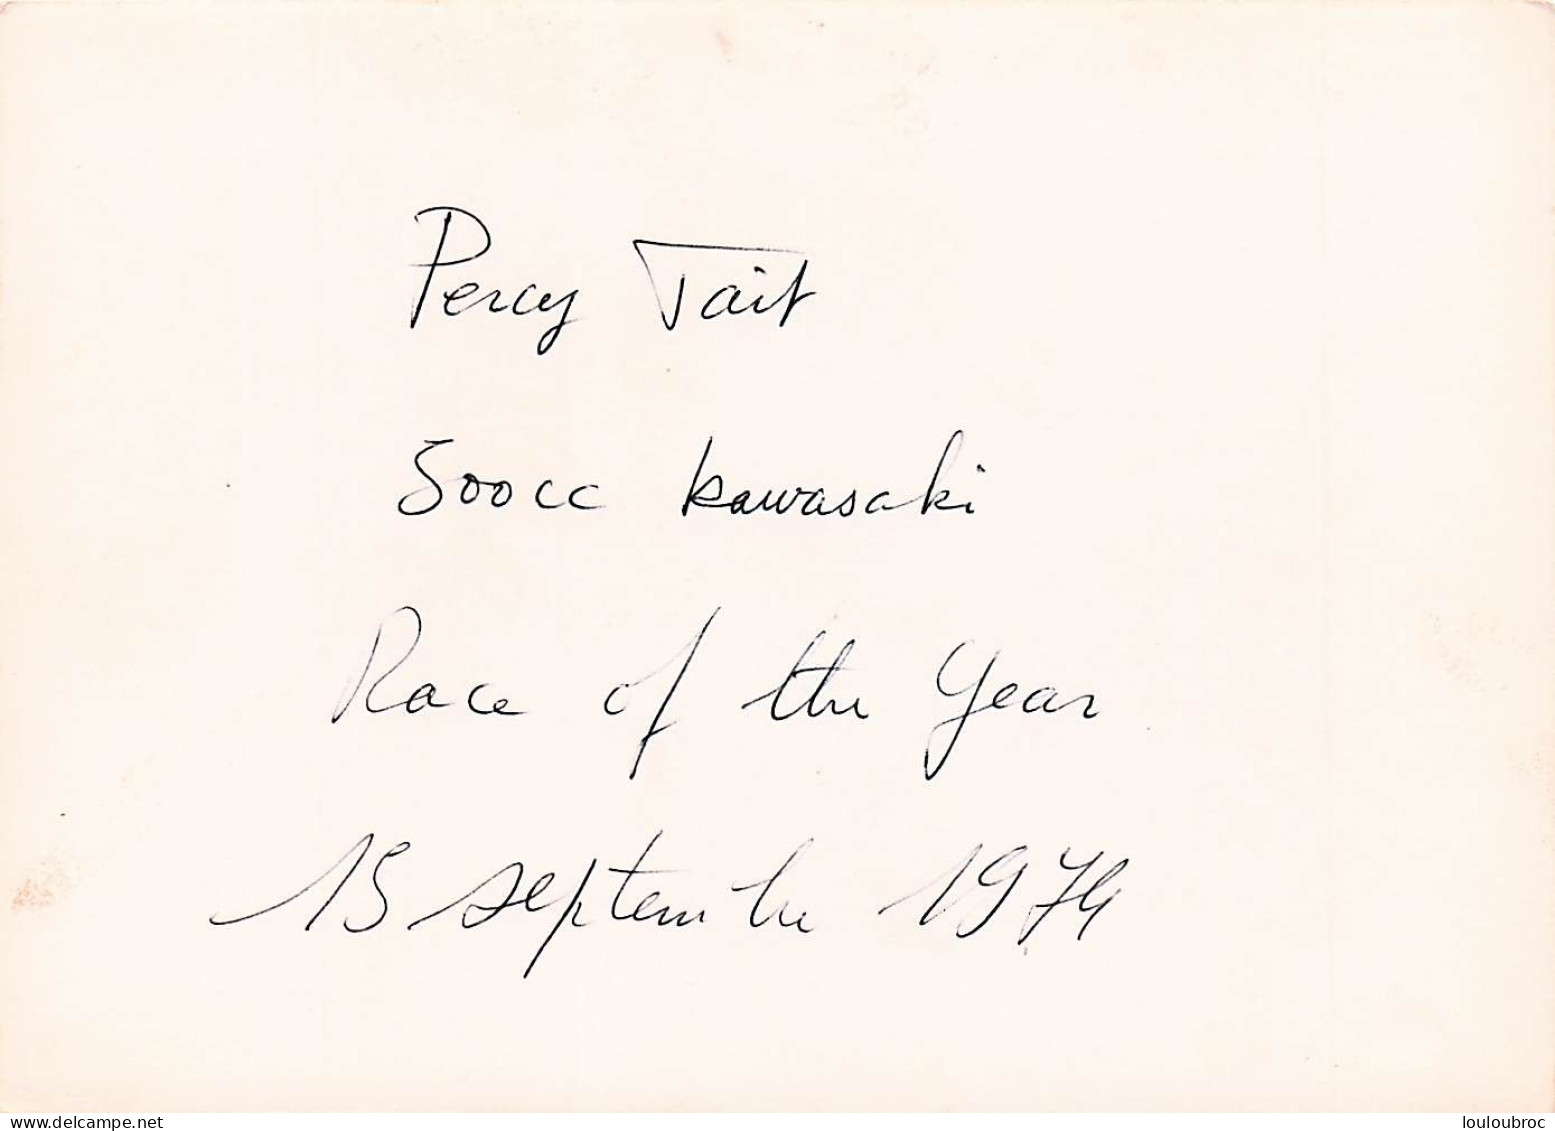 Percy Tait
500cc Kawasaki
Race of the Year
15 septembre 1974
delcampe.net
louloubroc